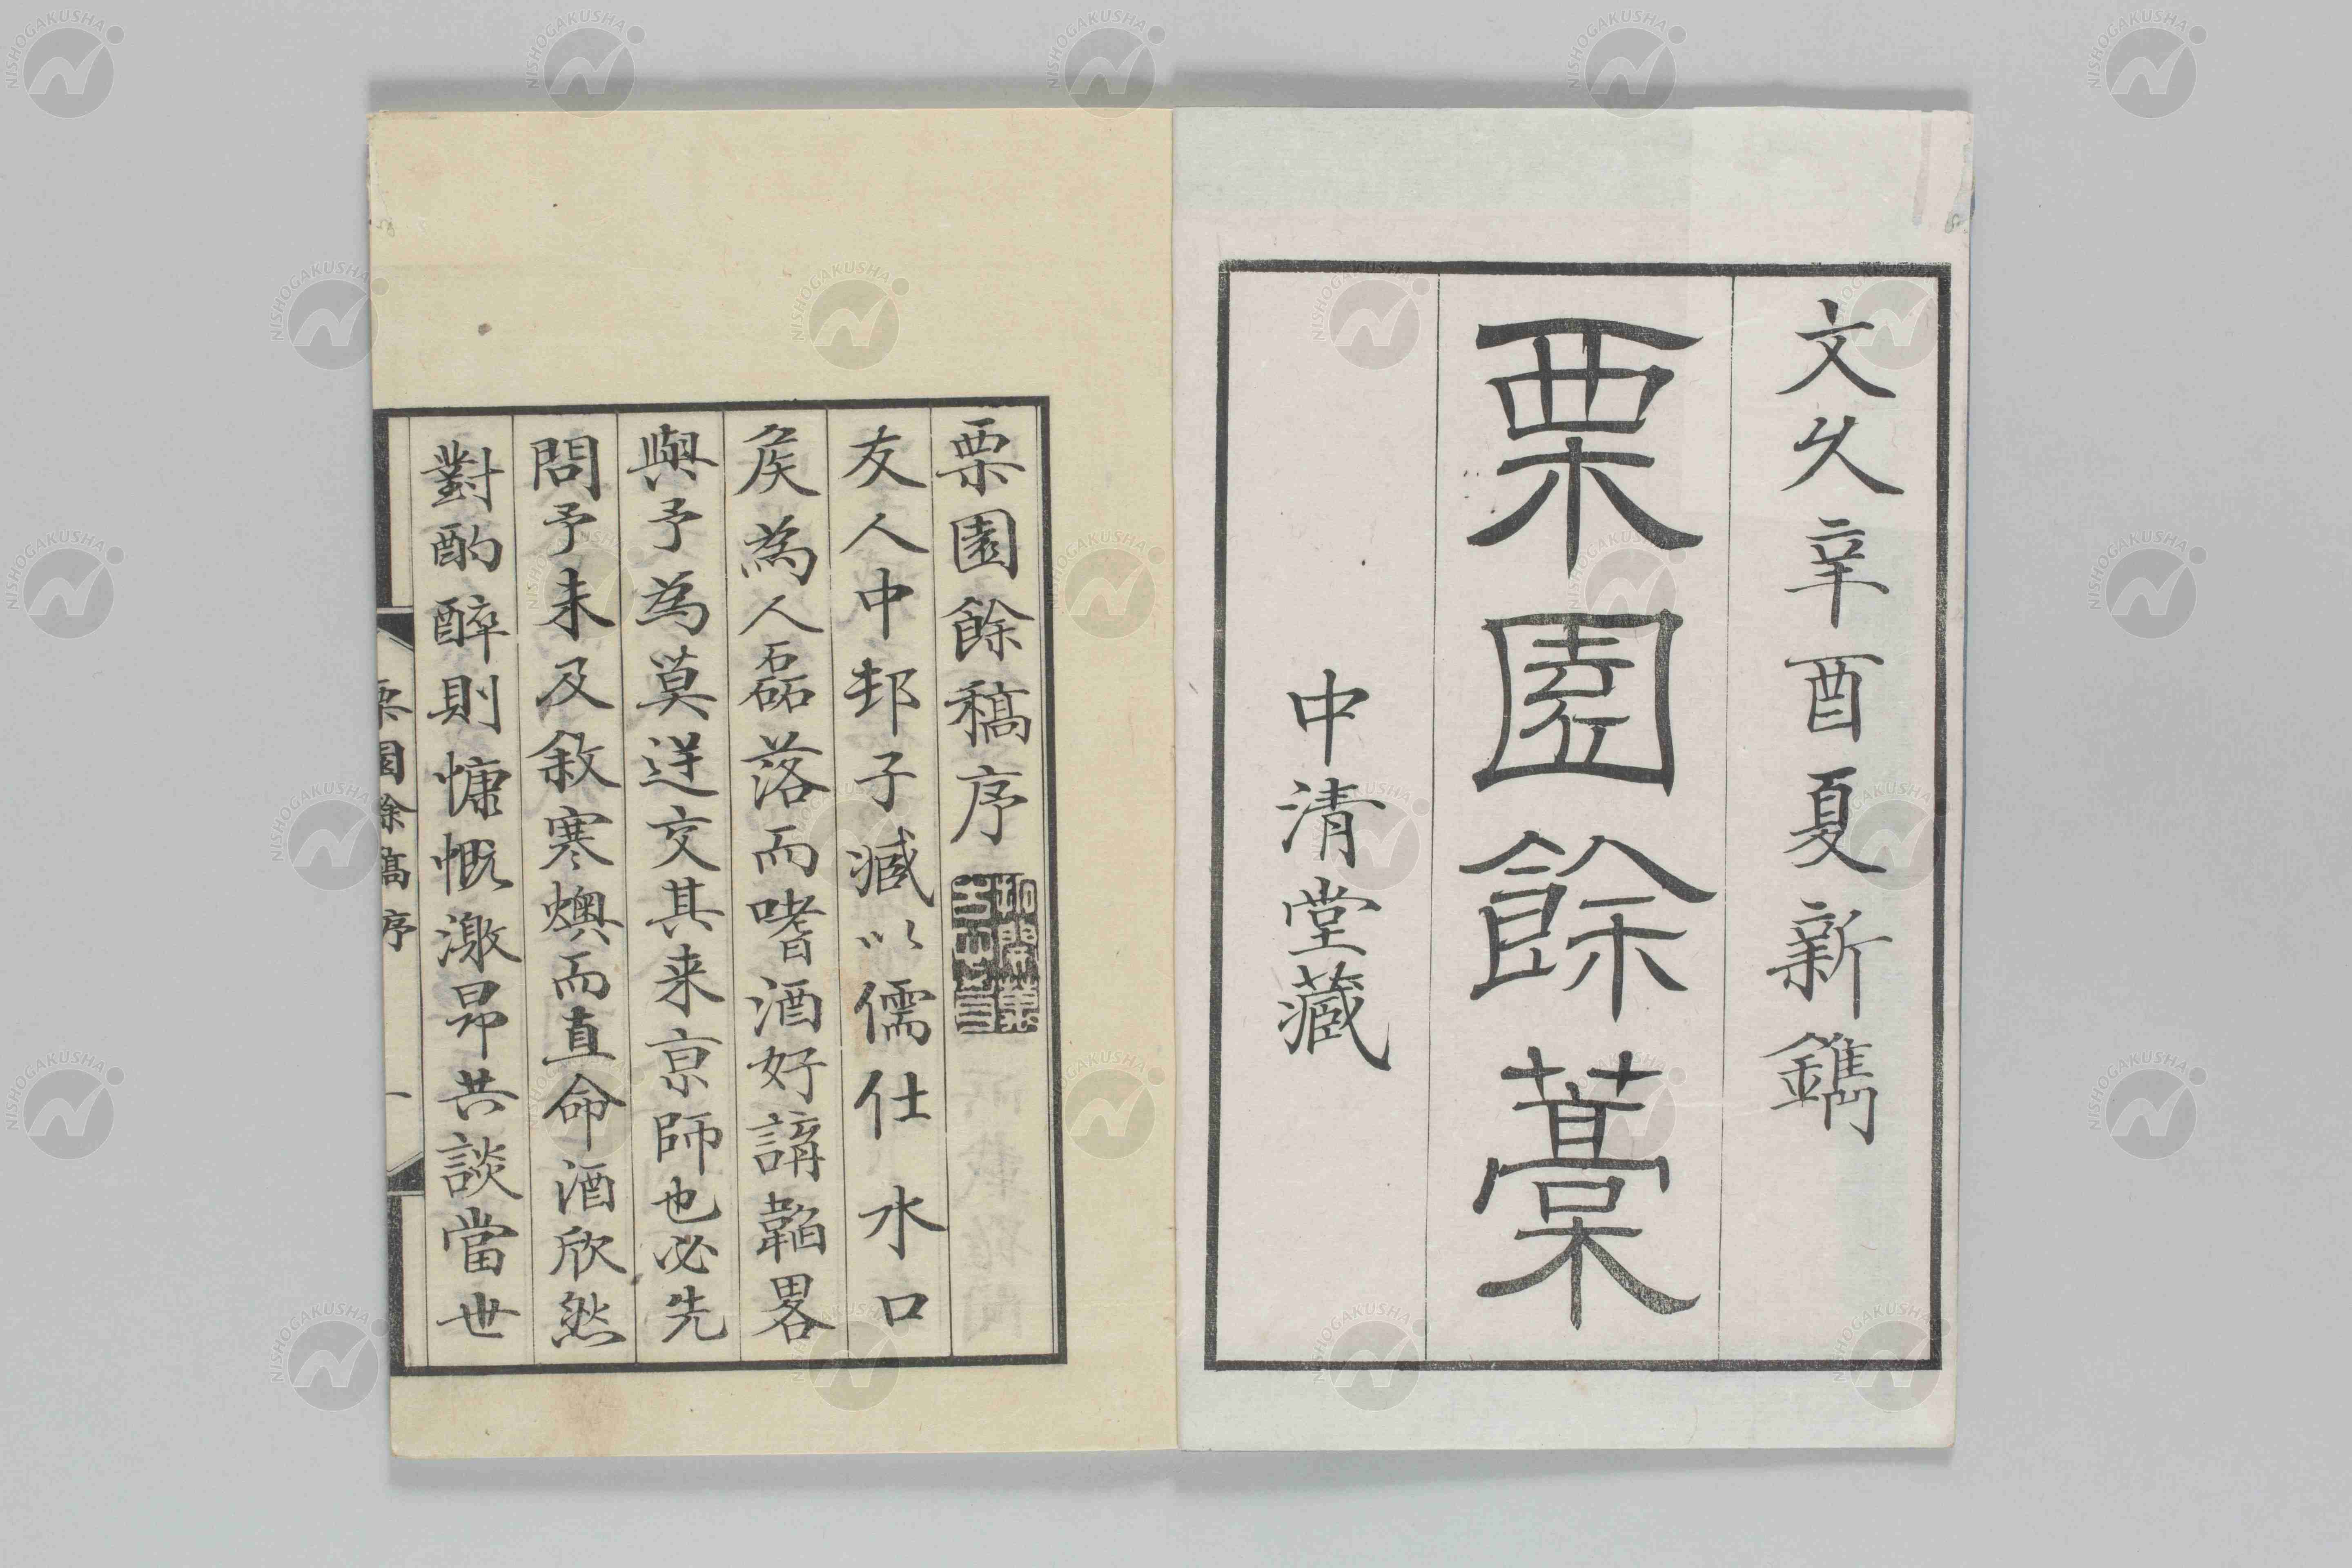 文久辛酉夏新鐫
栗園餘藁
中清堂藏
栗園餘稿序
友人中邨子臧以儒仕水口
矦為人磊落而嗜酒好講韜畧
與予為莫逆交其来京師也必先
問予未及敘寒燠而直命酒欣然
對酌醉則慷慨激昂共談當世
栗園餘稿序
一
NISHOGAKUSHA